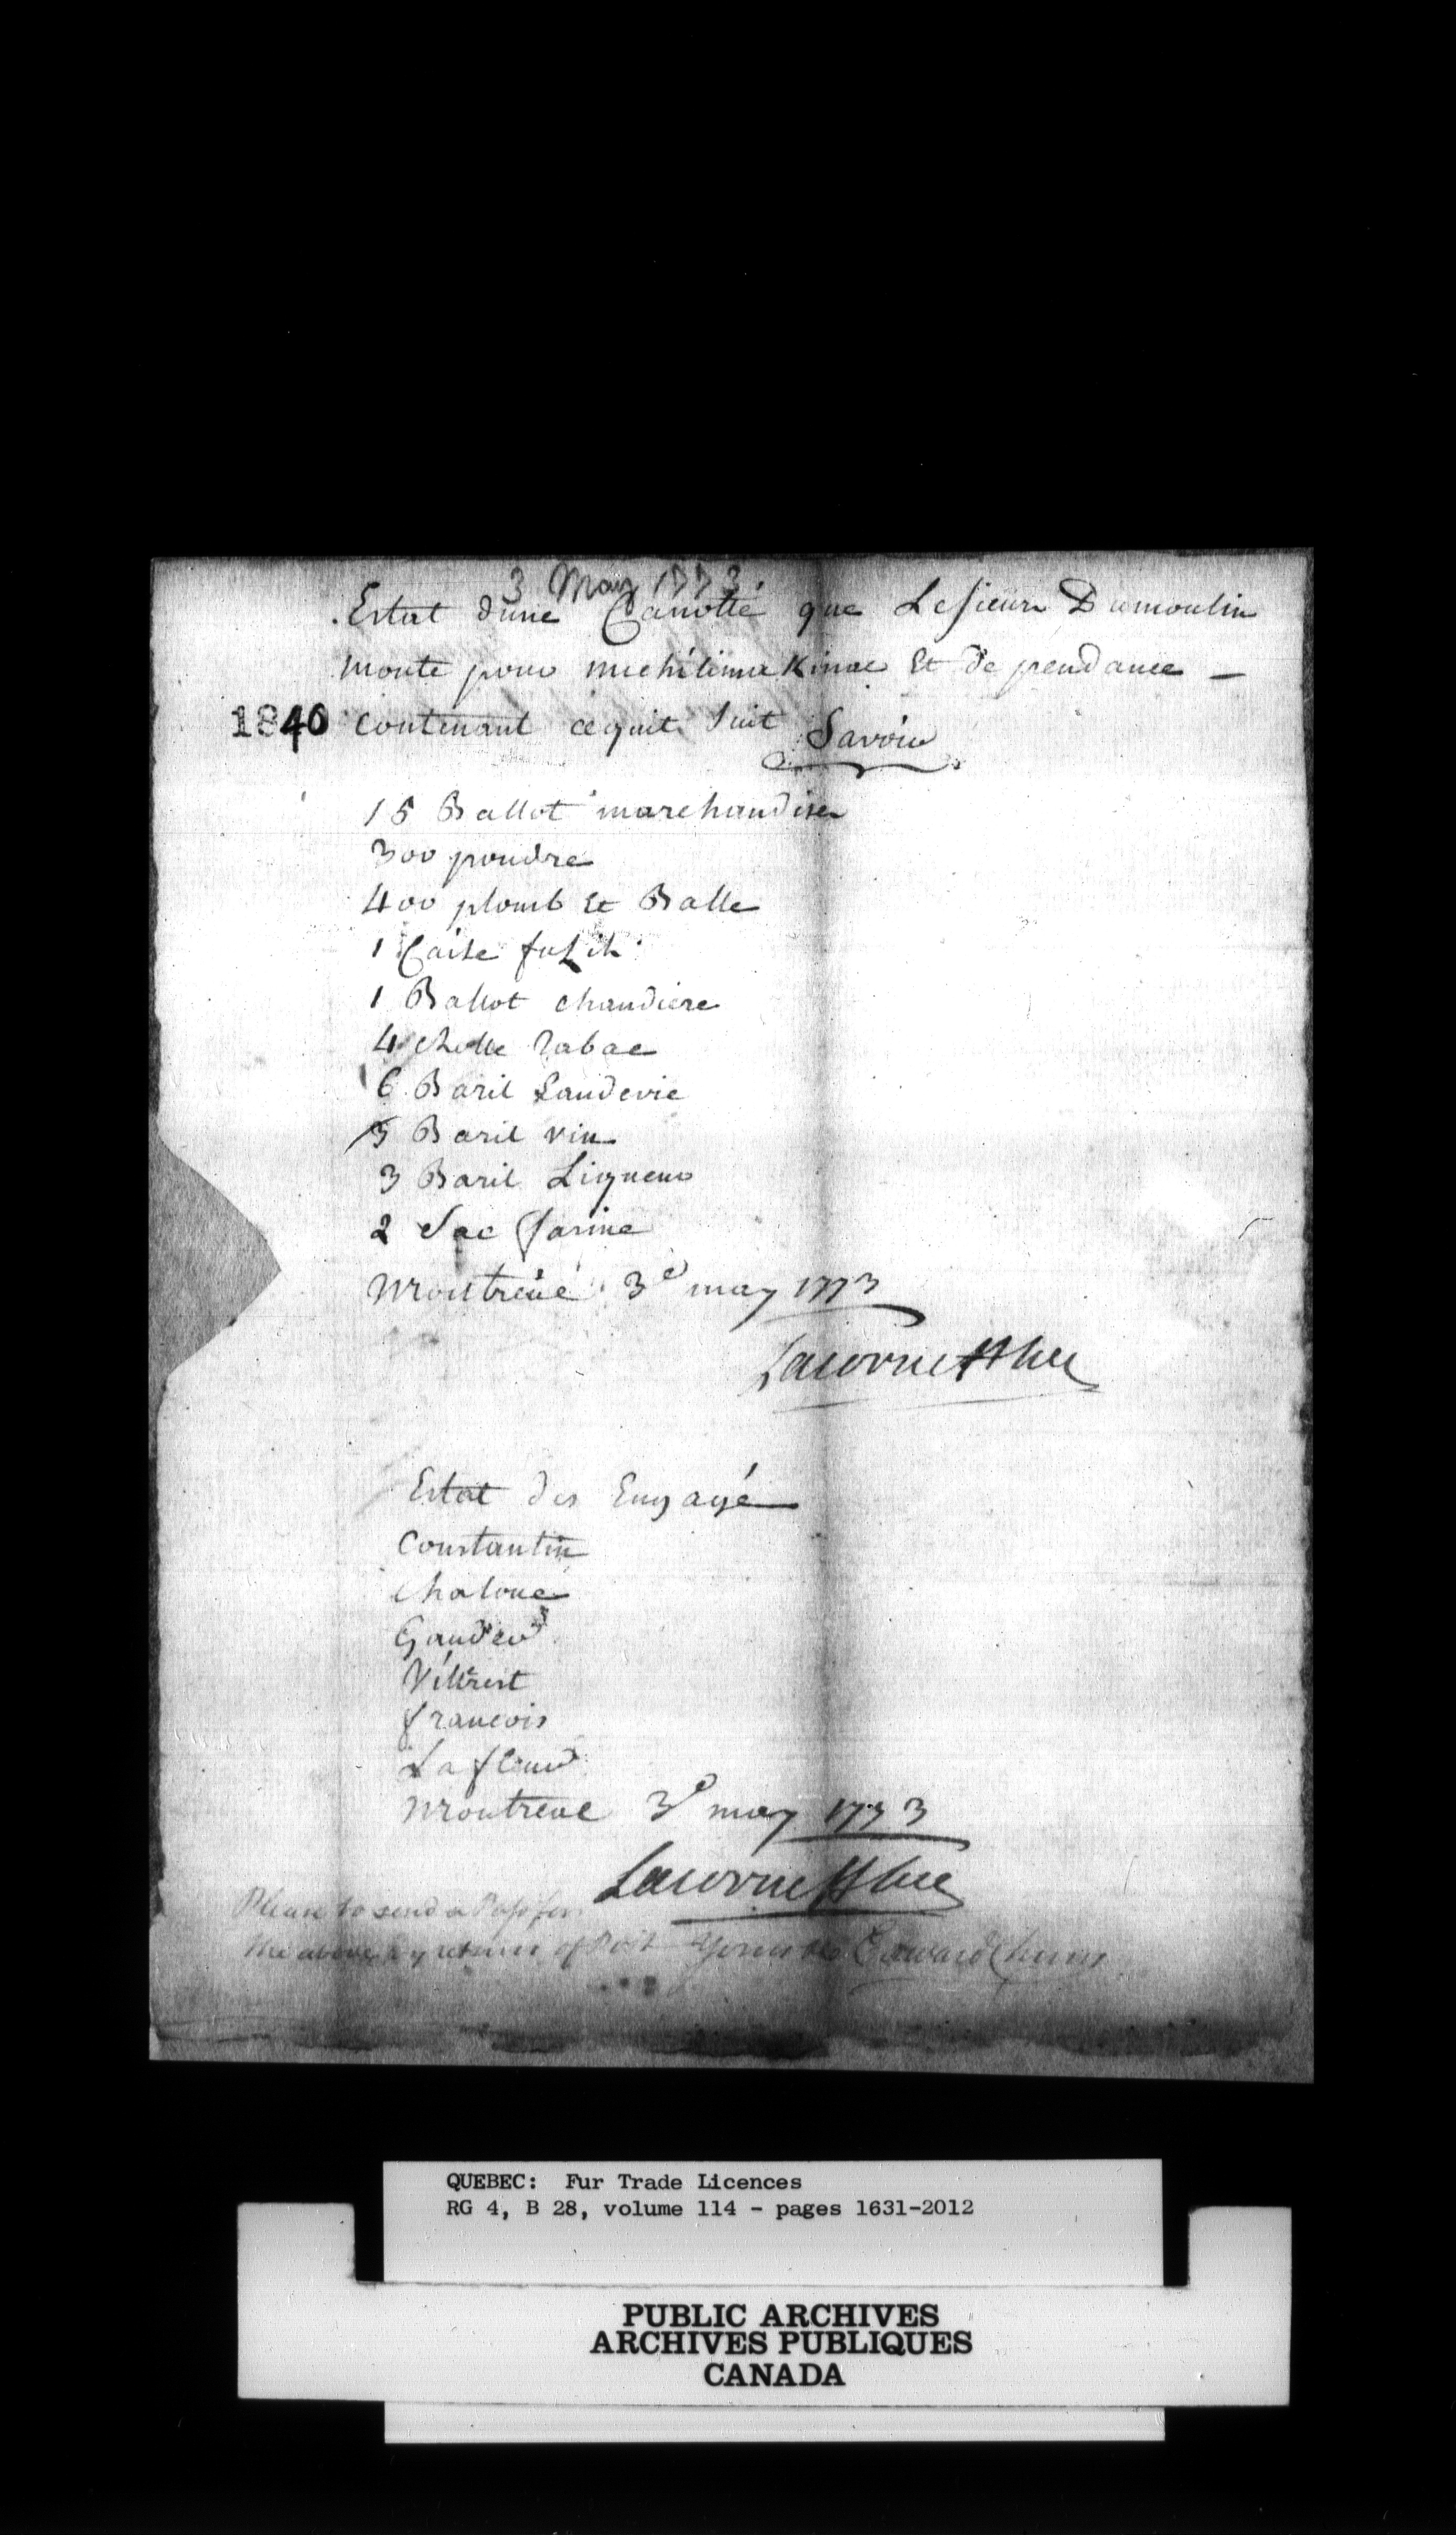 3 May 1773
Estat dune Canotté que Le sieur Dumoulin
monte pour michilimakinac Et de pendance —
1840
contenant cequit Suit Savoir
15 Ballot marchandise
300 poudre
400 plomb Et Balle
1 Caise fusil
1 Ballot chaudiere
4 Rolle Tabac
6 Baril Laudevie
5 Baril vin
3 Baril Liqueur
2 Sac farine
Montreal 3e may 1773
Lacorne
Estat des Engagé
Constantin
chaloue
Villrest
francois
Lafleur
Montreal 3e may 1773
Lacorne
Please to send a Pass for
the above by return of Post Yours Edward Chinn
QUEBEC: Fur Trade Licences
RG 4, B 28, volume 114 - pages 1631-2012
PUBLIC ARCHIVES
ARCHIVES PUBLIQUES
CANADA